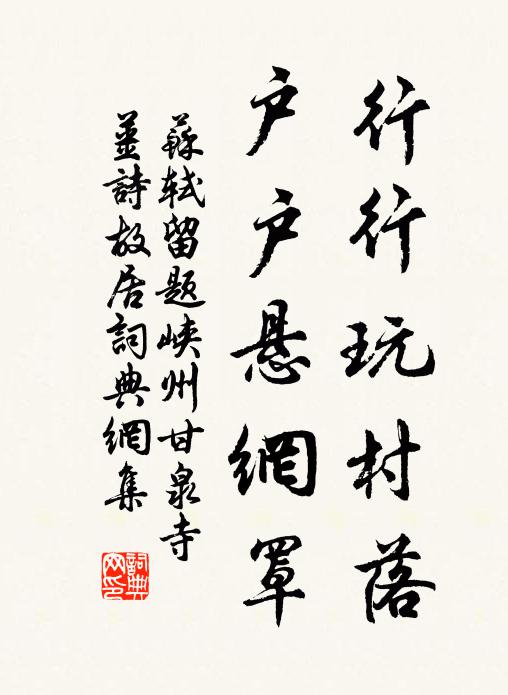 行行玩村落
户户悬網罩
蘇軾留題峽州甘泉寺
薑詩故居詞典網集
詞典网印